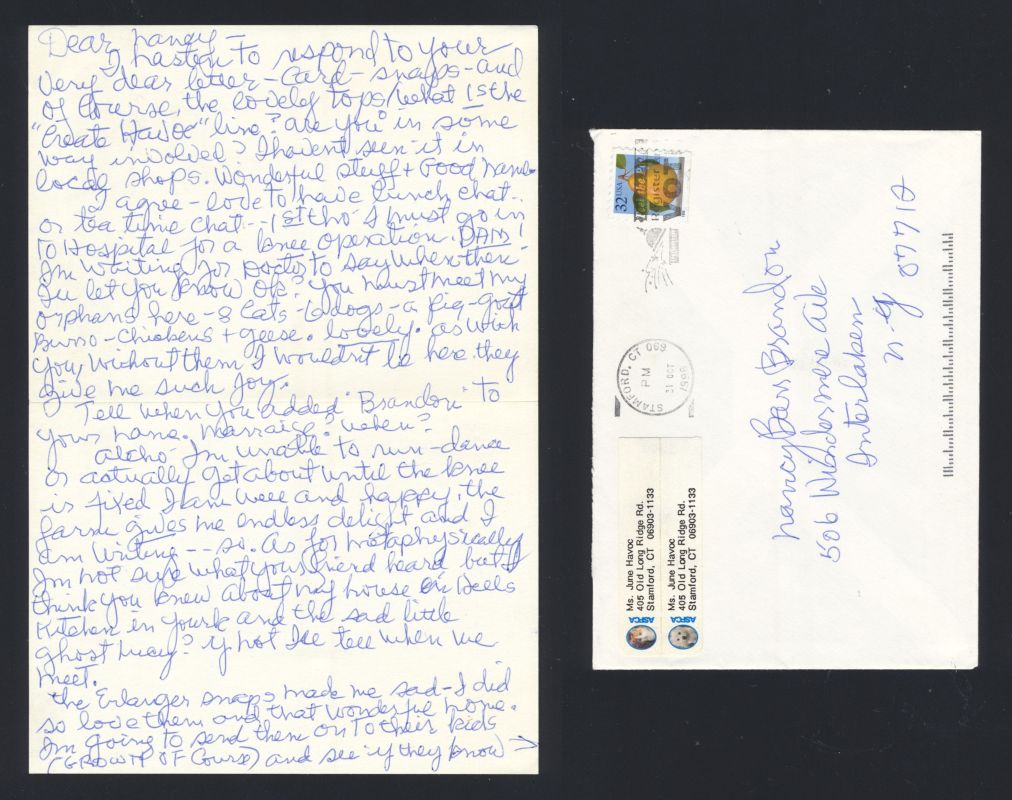 Dear Nancy –
I hasten to respond to your
very dear letter – card – snaps – and
of course, the lovely tops/what is the
"Create Havoc" line? are you in some
way involved? I havent seen it in
local shops. Wonderful stuff + Good name.
I agree – love to have lunch chat..
or tea time chat – 1st tho' I must go in
to Hospital for a knee operation. DAM!
Im waiting for Doctor to say when then
Ill let you know OK? You must meet my
orphans here – 8 Cats – 6 dogs – a pig – goat
Burro – chickens + geese. lovely. as wish
you without them I wouldn't be here. they
give me such joy.
Tell when you added "Brandon" to
your name. Marraise? when?
altho' Im unable to run – dance
or actually get about until the knee
is fixed I am well and happy, the
farm gives me endless delight and I
am writing -- so. As for metaphysically
Im not sure what your friend heard but I
think you knew about my house in Hells
Kitchen in York and the sad little
ghost Lucy? if not Ill tell when we
meet.
the Erlanger snaps made me sad – I did
so love them and that wonderful home.
Im going to send them on to their kids
(GROWN OF Course) and see if they know →
32 USA
STAMFORD, CT 069
PM
31 OCT
1998
Nancy Barr Brandon
506 Windermere Ave
Interlaken
N-J 07712
ASPCA
Ms. June Havoc
405 Old Long Ridge Rd.
Stamford, CT 06903-1133
ASPCA
Ms. June Havoc
405 Old Long Ridge Rd.
Stamford, CT 06903-1133